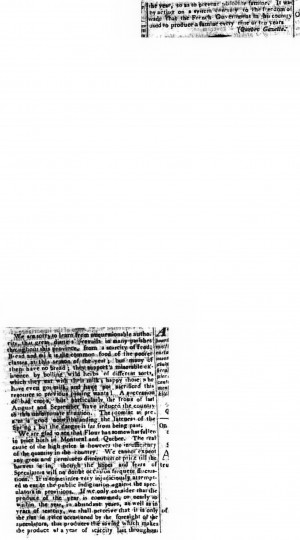 the year, so as to prevent absolute famine. It was
by acting on a system contrary to the freedom of
trade that the French Government in this country
used to produce a famine every nine or ten years
(Quebec Gazette.
We are sorry to learn from unquestionable autho-
rity, that great distress prevails in many parishes
throughout this province, from a scarcity of food;
Bread and milk is the common food of the poorer
classes at this season of the year; but many of
them have no bread; they support a miserable ex-
istence by boiling wild herbs of different sorts,
which they eat with their milk; happy those who
have even got milk, and have not sacrificed this
resource to previous pressing wants! A succession
of bad crops, but particularly, the frosts of last
August and September have reduced the country
to this calamitous situation. The coming
is good notwithstanding the lateness of the
Spring; but the danger is far from being past.
We are glad to see that Flour has somewhat fallen
in price both at Montreal and Quebec. The real
cause of the high price is however the insufficiency
of the quantity in the country. We cannot expect
any great and permanent diminution of price till the
harvest is in, though the hopes and fears of
Speculators will no doubt occasion frequent fluctua-
tions. It is sometimes very injudiciously attempt-
ed to excite the public indignation against the spe-
culators in provisions. If we only consider that the
produce of the year is consumed, or nearly so
within the year, in abundant years, as well as in
years of scarcity, we shall perceive that it is only
the rise in price occasioned by the foresight of the
speculators, that produces the saving which makes
the produce of a year of scarcity last throughout